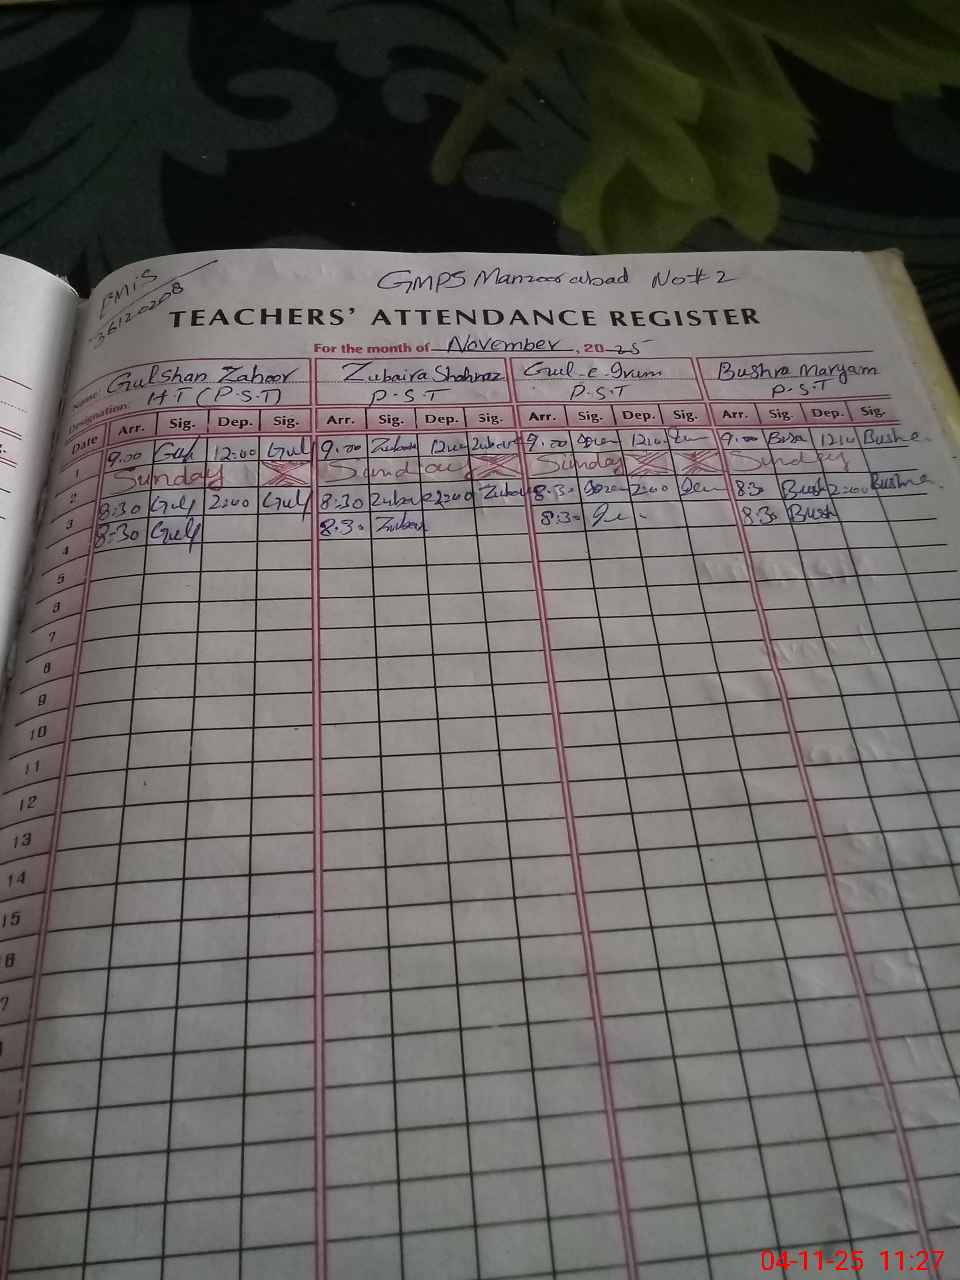 EMIS
36120208
GMPS Manzoorabad No# 2
TEACHERS' ATTENDANCE REGISTER
For the month of November, 2025
Name: Gulshan Zahoor Zubaira Shahnaz Gul-e-Irum Bushra Maryam
Designation: H.T (P.S.T) P.S.T P.S.T P.S.T
Date Arr. Sig. Dep. Sig. Arr. Sig. Dep. Sig. Arr. Sig. Dep. Sig. Arr. Sig. Dep. Sig.
1 9.00 Gul 12:00 Gul 9.00 12:00 9.00 12:00 9.00 12:00 Bushra
2 Sunday Sunday Sunday Sunday
3 8:30 Gul 2:00 Gul 8:30 2:00 8:30 2:00 8:30 Bush 2:00 Bushra
4 8:30 Gul 8:30 8:30 8:30 Bush
5
6
7
8
9
10
11
12
13
14
15
04-11-25 11:27